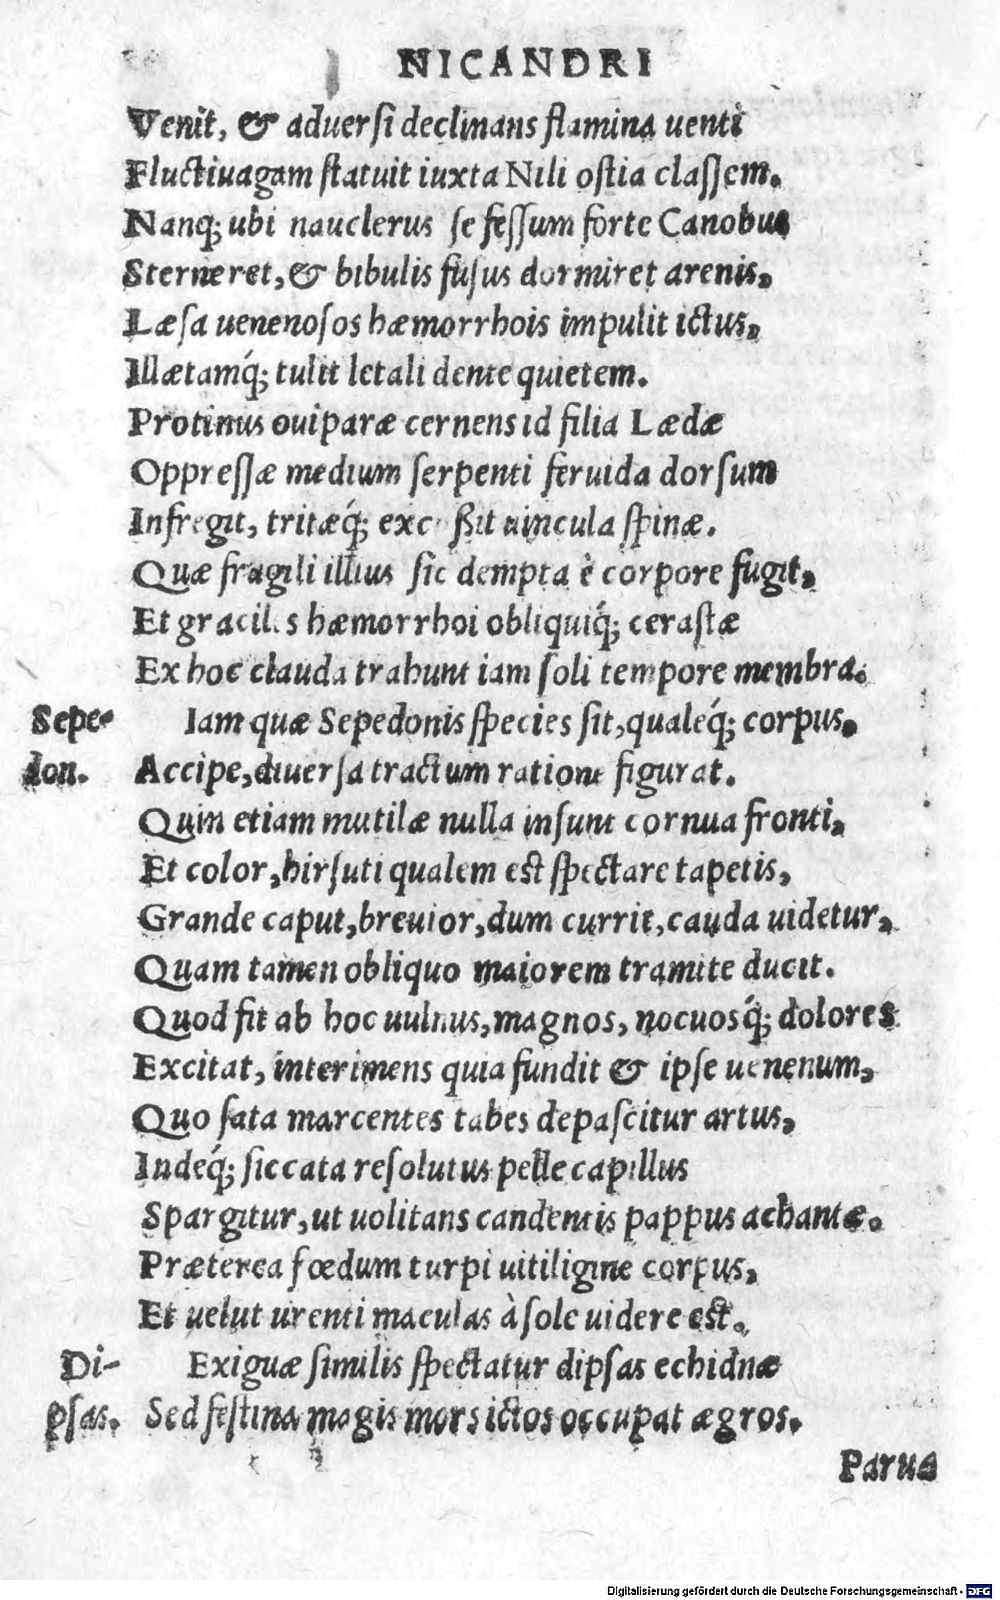 NICANDRI
Venit, & aduersi declinans flamina uenti
Fluctiuagam statuit iuxta Nili ostia classem.
Nanq; ubi nauclerus se fessum forte Canobus
Sterneret, & bibulis fusus dormiret arenis,
Læsa uenenosos hæmorrhois impulit ictus,
Illætamq́; tulit letali dente quietem.
Protinus ouiparæ cernens id filia Lædæ
Oppressæ medium serpenti feruida dorsum
Infregit, tritæq́; excussit uincula spinæ.
Quæ fragili illius sic dempta è corpore fugit,
Et graciles hæmorrhoi obliquiq́; cerastæ
Ex hoc clauda trahunt iam soli tempore membra.
Sepe-
don.
Iam quæ Sepedonis species sit, qualeq́; corpus,
Accipe, diuersa tractum ratione figurat.
Quin etiam mutilæ nulla insunt cornua fronti,
Et color, hirsuti qualem est spectare tapetis,
Grande caput, breuior, dum currit, cauda uidetur,
Quam tamen obliquo maiorem tramite ducit.
Quod fit ab hoc uulnus, magnos, nocuosq́; dolores
Excitat, interimens quia fundit & ipse uenenum,
Quo sata marcentes tabes depascitur artus,
Indeq́; siccata resolutus pelle capillus
Spargitur, ut uolitans candentis pappus achantæ.
Præterea fœdum turpi uitiligine corpus,
Et uelut urenti maculas à sole uidere est.
Di-
psas.
Exiguæ similis spectatur dipsas echidnæ
Sed festina magis mors ictos occupat ægros.
Parua
Digitalisierung gefördert durch die Deutsche Forschungsgemeinschaft - DFG